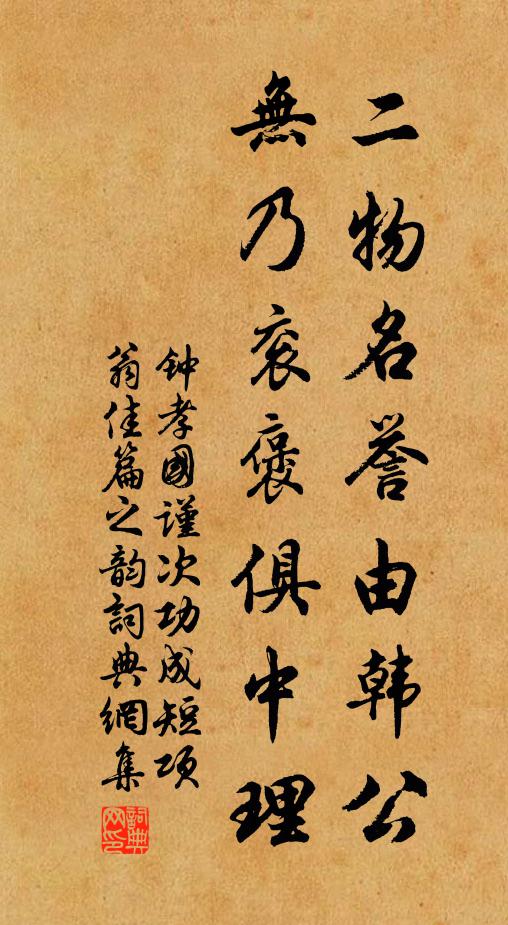 二物名誉由韩公
無乃衮褒俱中理
钟孝國谨次功成短项
翁佳篇之韵詞典網集
詞典网印